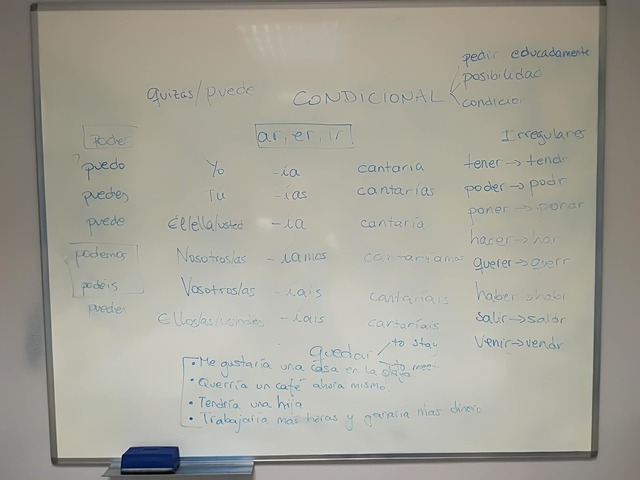 pedir educadamente
quizás/puede CONDICIONAL posibilidad
condicion
Poder ar, er, ir Irregulares
puedo Yo -ía cantaría tener→tendr
puedes Tu -ías cantarías poder→podr
puede Él/ella/usted -ía cantaría poner→
podemos Nosotros/as -íamos hacer→har
podéis Vosotros/as -íais cantaríais querer→querr
puedes haber→habr
Ellos/as/ -íais cantaríais salir→saldr
quedar to stay venir→vendr
to meet
• Me gustaría una casa en la playa
• Querría un café ahora mismo.
• Tendría una hija
• Trabajaría más horas y ganaría más dinero